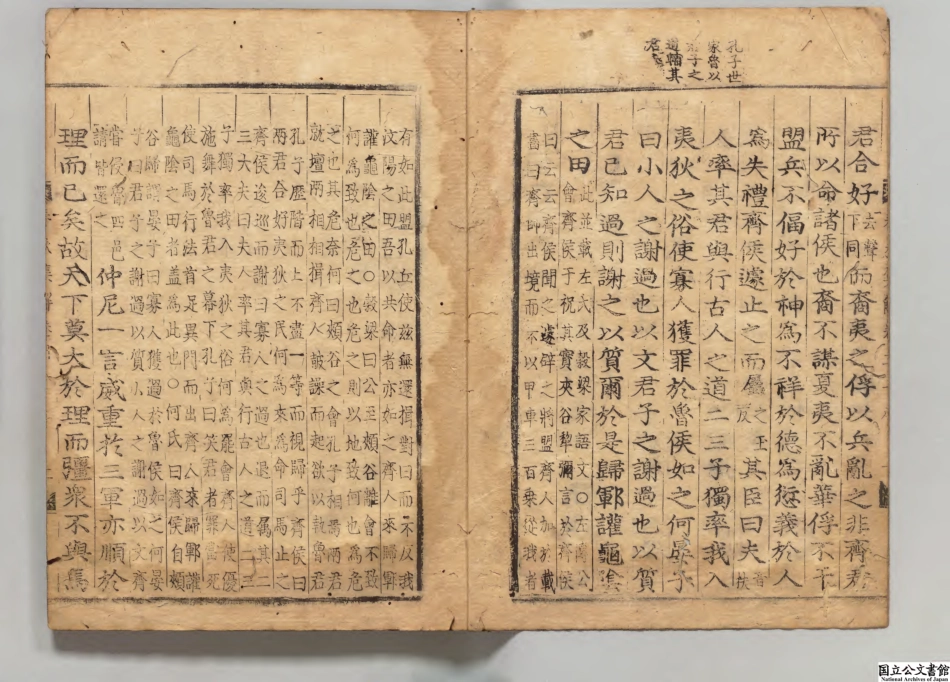 孔子世
家魯以
君子之
道輔其
君
君合好去聲下同而裔夷之俘以兵亂之非齊君
所以命諸侯也裔不謀夏夷不亂華俘不干
盟兵不偪好於神爲不祥於德爲愆義於人
爲失禮齊侯遽止之而屬之玉反其臣曰夫音扶
人率其君與行古人之道二三子獨率我入
夷狄之俗使寡人獲罪於魯侯如之何晏子
曰小人之謝過也以文君子之謝過也以質
君已知過則謝之以質爾於是歸鄆讙龜陰
之田
此並載左氏及穀梁家語文○左傳公
會齊侯于祝其實夾谷犂彌言於齊侯
曰云云齊侯聞之遽辟之將盟齊人加於載
書曰齊師出境而不以甲車三百乘從我者
有如此盟孔丘使茲無還揖對曰而不反我
汶陽之田吾以共命者亦如之齊人來歸鄆
讙龜陰之田○穀梁曰公至頰谷離會不致
何爲致也危之也危之則以地致何也爲危
之也其危奈何曰頰谷之會孔子相焉兩君
就壇兩相相揖齊人鼓譟而起欲以執魯君
孔子歷階而上不盡一等而視歸乎齊侯曰
兩君合好夷狄之民何爲來爲命司馬止之
齊侯逡巡而謝曰寡人之過也退而屬其二
三大夫曰夫人率其君與行古人之道二三
子獨率我入夷狄之俗何爲罷會齊人使優
施舞於魯君之幕下孔子曰笑君者罪當死
使司馬行法首足異門而出齊人來歸鄆讙
龜陰之田者蓋爲此也○何氏曰齊侯自頰
谷歸謂晏子曰寡人獲過於魯侯如之何晏
子曰君子之謝過以質小人之謝過以文齊
嘗侵魯四邑
請皆還之
仲尼一言威重於三軍亦順於
理而已矣故天下莫大於理而彊衆不與焉
国立公文書館
National Archives of Japan